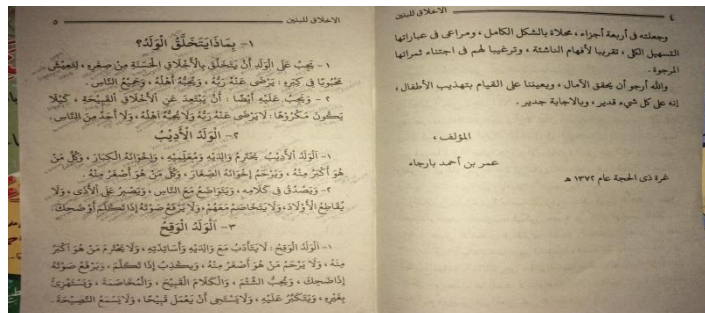 الاخلاق للبنين ٤
وجعلته في أربعة أجزاء ، محلاة بالشكل الكامل ، ومراعى فى عباراتها
التسهيل الكلى ، تقريبا لأفهام الناشئة ، وترغيبا لهم فى اجتناء ثمراتها
المرجوة .
والله أرجو أن يحقق الآمال ، ويعيننا على القيام بتهذيب الأطفال ،
إنه على كل شىء قدير ، وبالاجابة جدير .
المؤلف ،
عمر بن أحمد بارجاء
غرة ذى الحجة عام ١٣٧٢ هـ
الاخلاق للبنين ٥
١- بِمَاذَا يَتَخَلَّقُ الْوَلَدُ؟
١ - يَجِبُ عَلَى الْوَلَدِ أَنْ يَتَخَلَّقَ بِالْأَخْلَاقِ الْحَسَنَةِ مِنْ صِغَرِهِ ، لِيَعِيْشَ
مَحْبُوبًا فِى كِبَرِهِ : يَرْضَى عَنْهُ رَبُّهُ ، وَيُحِبُّهُ أَهْلُهُ ، وَجَمِيْعُ النَّاسِ .
٢ - وَيَجِبُ عَلَيْهِ أَيْضًا : أَنْ يَبْتَعِدَ عَنِ الْأَخْلَاقِ الْقَبِيْحَةِ ، كَيْلَا
يَكُونَ مَكْرُوْهًا : لَا يَرْضَى عَنْهُ رَبُّهُ وَلَا يُحِبُّهُ أَهْلُهُ ، وَلَا أَحَدٌ مِنَ النَّاسِ .
٢- اَلْوَلَدُ الْأَدِيْبُ
١- اَلْوَلَدُ الْأَدِيْبُ يَحْتَرِمُ وَالِدَيْهِ وَمُعَلِّمِيْهِ ، وَإِخْوَانَهُ الْكِبَارَ ، وَكُلَّ مَنْ
هُوَ أَكْبَرُ مِنْهُ ، وَيَرْحَمُ إِخْوَانَهُ الصِّغَارَ ، وَكُلَّ مَنْ هُوَ أَصْغَرُ مِنْهُ .
٢- وَيَصْدُقُ فِى كَلَامِهِ ، وَيَتَوَاضَعُ مَعَ النَّاسِ ، وَيَصْبِرُ عَلَى الْأَذَى ، وَلَا
يُقَاطِعُ الْأَوْلَادَ ، وَلَا يَتَخَاصَمُ مَعَهُمْ ، وَلَا يَرْفَعُ صَوْتَهُ إِذَا تَكَلَّمَ أَوْ ضَحِكَ .
٣- اَلْوَلَدُ الْوَقِحُ
١- اَلْوَلَدُ الْوَقِحُ : لَا يَتَأَدَّبُ مَعَ وَالِدَيْهِ وَأَسَاتِذَتِهِ ، وَلَا يَحْتَرِمُ مَنْ هُوَ أَكْبَرُ
مِنْهُ ، وَلَا يَرْحَمُ مَنْ هُوَ أَصْغَرُ مِنْهُ ، وَيَكْذِبُ إِذَا تَكَلَّمَ ، وَيَرْفَعُ صَوْتَهُ
إِذَا ضَحِكَ ، وَيُحِبُّ الشَّتْمَ ، وَالْكَلَامَ الْقَبِيْحَ ، وَالْمُخَاصَمَةَ ، وَيَسْتَهْزِئُ
بِغَيْرِهِ ، وَيَتَكَبَّرُ عَلَيْهِ ، وَلَا يَسْتَحِى أَنْ يَعْمَلَ قَبِيْحًا ، وَلَا يَسْمَعُ النَّصِيْحَةَ .